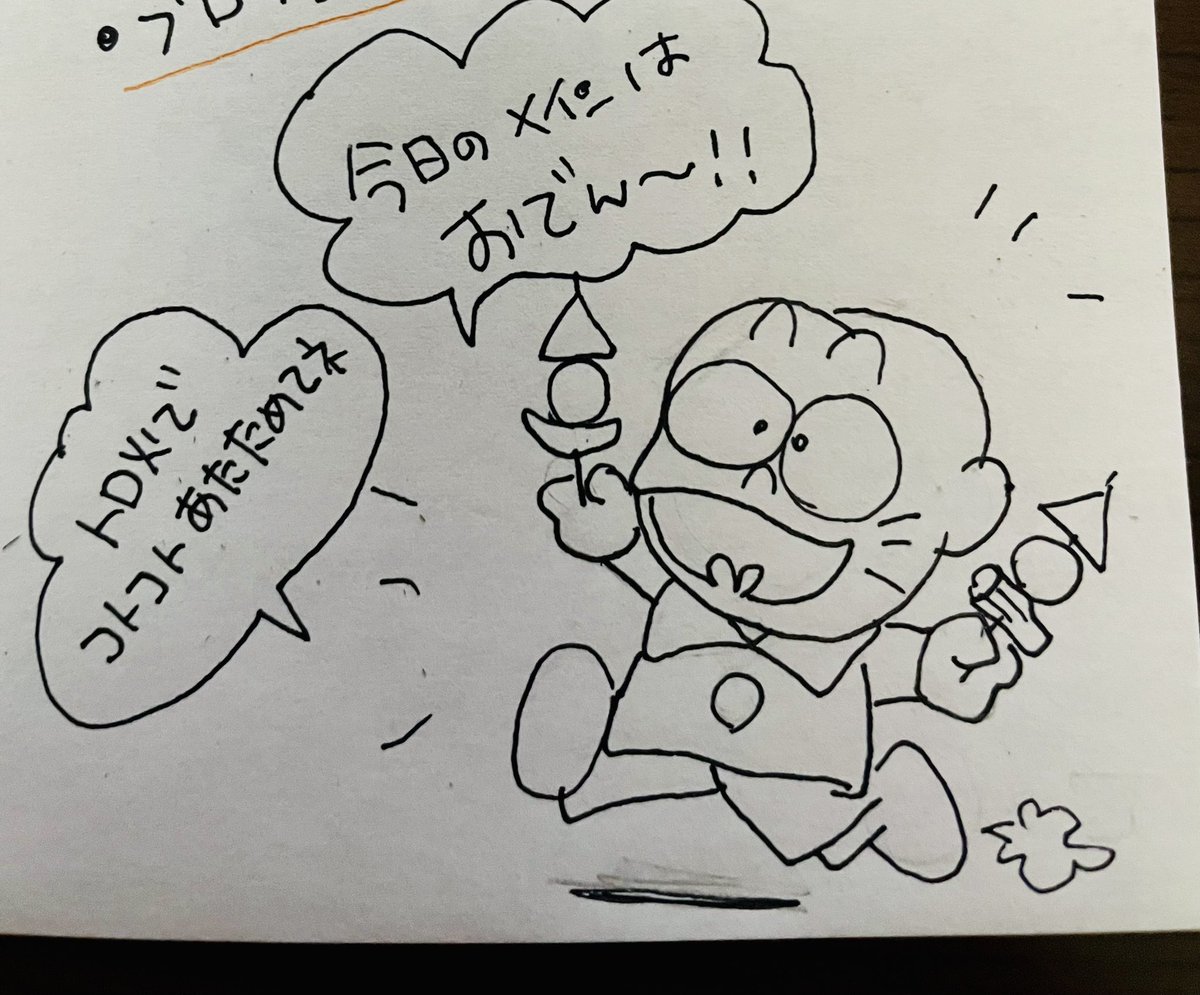 ・ブロ
今日のメインは
おでん〜!!
トロ火で
コトコトあたためてネ